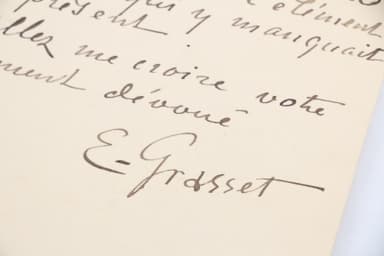 élément
présent qui y manquait
llez me croire votre
ment dévoué
E. Grasset